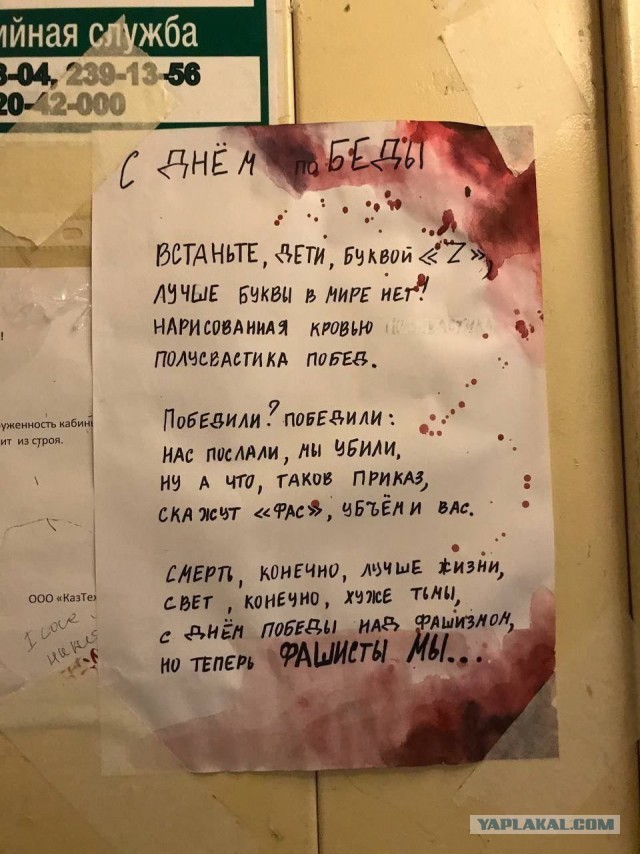 ийная служба
3-04, 239-13-56
20-42-000
С ДНЁМ поБЕДЫ
ВСТАНЬТЕ, ДЕТИ, БУКВОЙ «Z»,
ЛУЧШЕ БУКВЫ В МИРЕ НЕТ!
НАРИСОВАННАЯ КРОВЬЮ
ПОЛУСВАСТИКА ПОБЕД.
ПОБЕДИЛИ? ПОБЕДИЛИ:
НАС ПОСЛАЛИ, МЫ УБИЛИ,
НУ А ЧТО, ТАКОВ ПРИКАЗ,
СКАЖУТ «ФАС», УБЪЁМ И ВАС.
СМЕРТЬ, КОНЕЧНО, ЛУЧШЕ ЖИЗНИ,
СВЕТ, КОНЕЧНО, ХУЖЕ ТЬМЫ,
С ДНЁМ ПОБЕДЫ НАД ФАШИЗМОМ,
НО ТЕПЕРЬ ФАШИСТЫ МЫ...
!
уженность кабин
ит из строя.
ООО «КазТех
I love
YAPLAKAL.COM